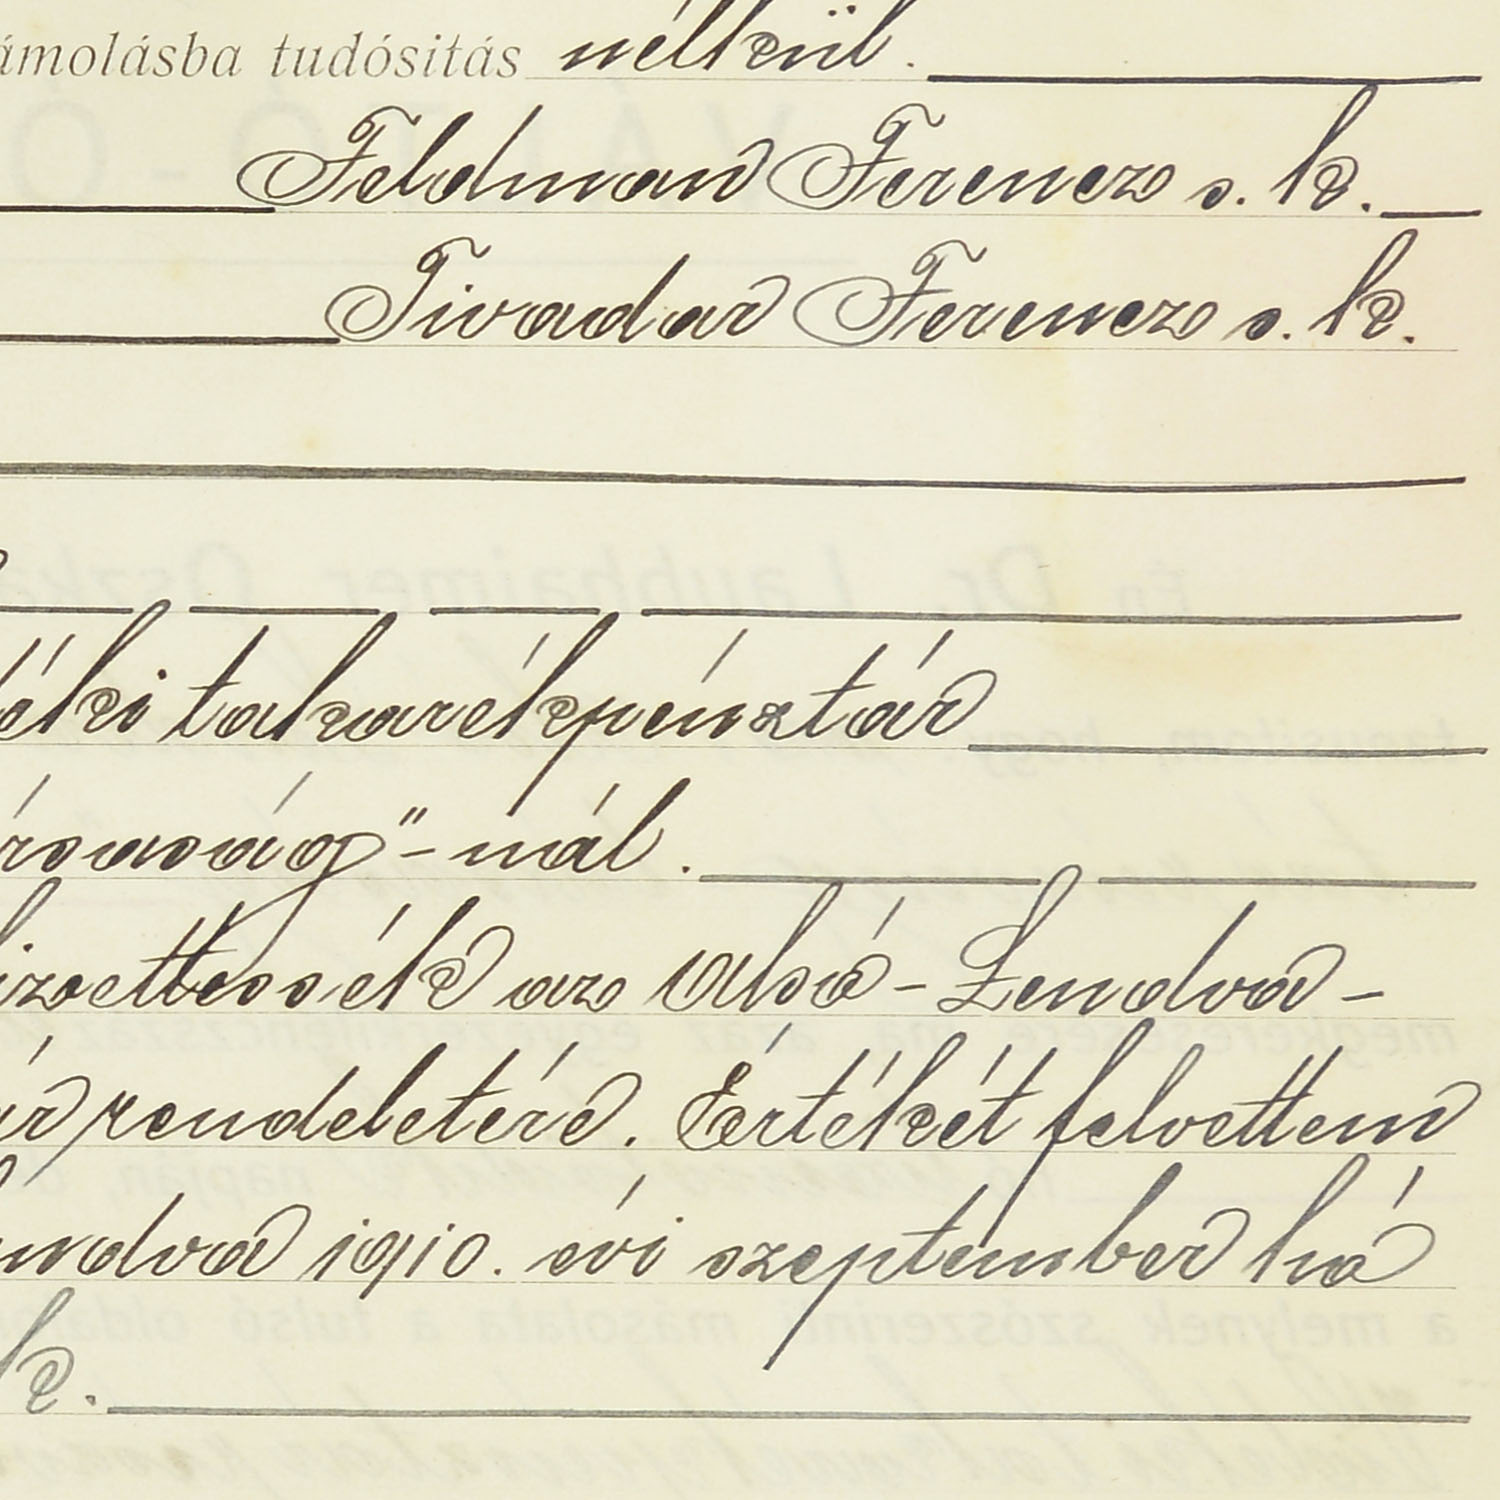 ámolásba tudósitás nélkül.
Feldman Ferencz s. k.
Tivadar Ferencz s. k.
éki takarékpénztár
ársaság"-nál.
izettessék az Alsó-Lendva-
ár rendeletére. Értékét felvettem
endva 1910. évi szeptember hó
k.